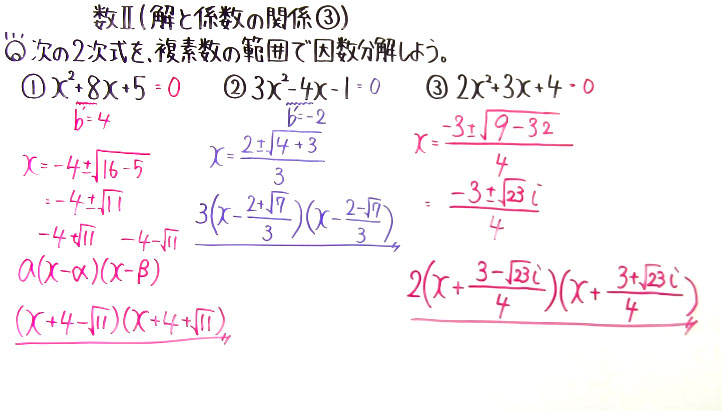 数Ⅱ(解と係数の関係③)
次の2次式を、複素数の範囲で因数分解しよう。
① x²+8x+5 = 0
b'=4
x = -4±√16-5
= -4±√11
-4+√11 -4-√11
a(x-α)(x-β)
(x+4-√11)(x+4+√11)
② 3x²-4x-1 = 0
b'=-2
x = 2±√4+3 / 3
3(x - 2+√7 / 3)(x - 2-√7 / 3)
③ 2x²+3x+4 = 0
x = -3±√9-32 / 4
= -3±√23 i / 4
2(x + 3-√23 i / 4)(x + 3+√23 i / 4)